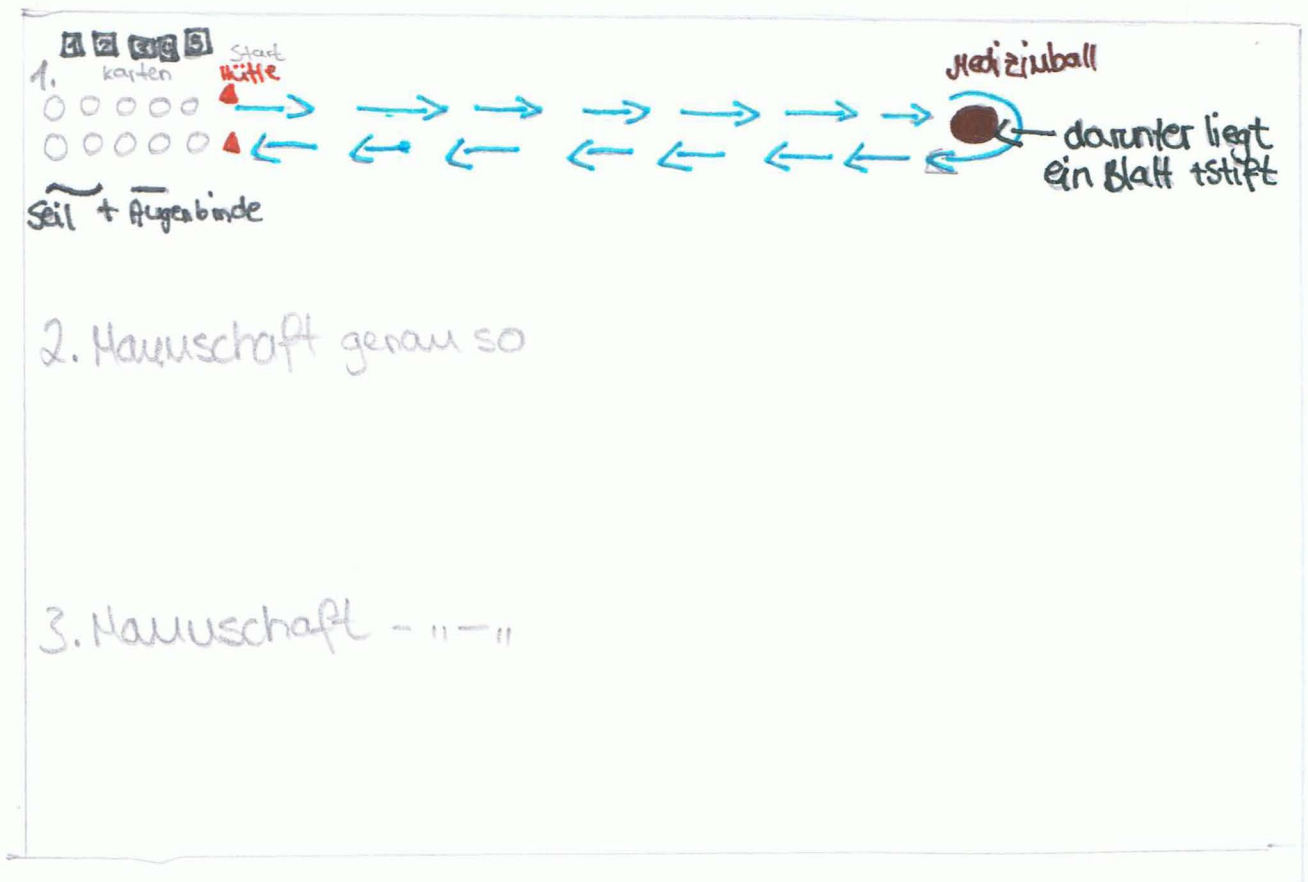 1 2 3 4 5
Start
1. Karten Hütte
Medizinball
darunter liegt
ein Blatt + Stift
Seil + Augenbinde
2. Mannschaft genau so
3. Mannschaft - " - "